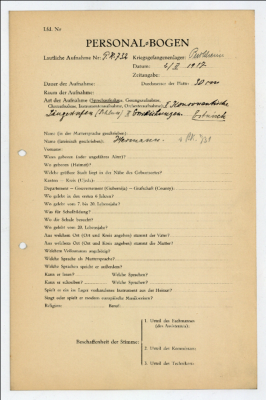 Lfd. Nr
PERSONAL-BOGEN
Lautliche Aufnahme Nr: P.K. 732 Kriegsgefangenenlager:
Datum: 1917
Zeitangabe:
Dauer der Aufnahme: Durchmesser der Platte: 30 cm
Raum der Aufnahme:
Art der Aufnahme (Sprechaufnahme, Gesangsaufnahme, Choraufnahme, Instrumentenaufnahme, Orchesteraufnahme):
Name (in der Muttersprache geschrieben):
Name (lateinisch geschrieben):
Vorname:
Wann geboren (oder ungefähres Alter)?
Wo geboren (Heimat)?
Welche größere Stadt liegt in der Nähe des Geburtsortes?
Kanton - Kreis (Ujedz):
Department - Gouvernement (Gubernija) - Grafschaft (County):
Wo gelebt in den ersten 6 Jahren?
Wo gelebt vom 7. bis 20. Lebensjahr?
Was für Schulbildung?
Wo die Schule besucht?
Wo gelebt vom 20. Lebensjahr?
Aus welchem Ort (Ort und Kreis angeben) stammt der Vater?
Aus welchem Ort (Ort und Kreis angeben) stammt die Mutter?
Welchem Volksstamm angehörig?
Welche Sprache als Muttersprache?
Welche Sprachen spricht er außerdem?
Kann er lesen? Welche Sprachen?
Kann er schreiben? Welche Sprachen?
Spielt er ein im Lager vorhandenes Instrument aus der Heimat?
Singt oder spielt er modern europäische Musikweisen?
Religion: Beruf:
Beschaffenheit der Stimme:
1. Urteil des Fachmannes
(des Assistenten):
2. Urteil des Kommissars:
3. Urteil des Technikers: